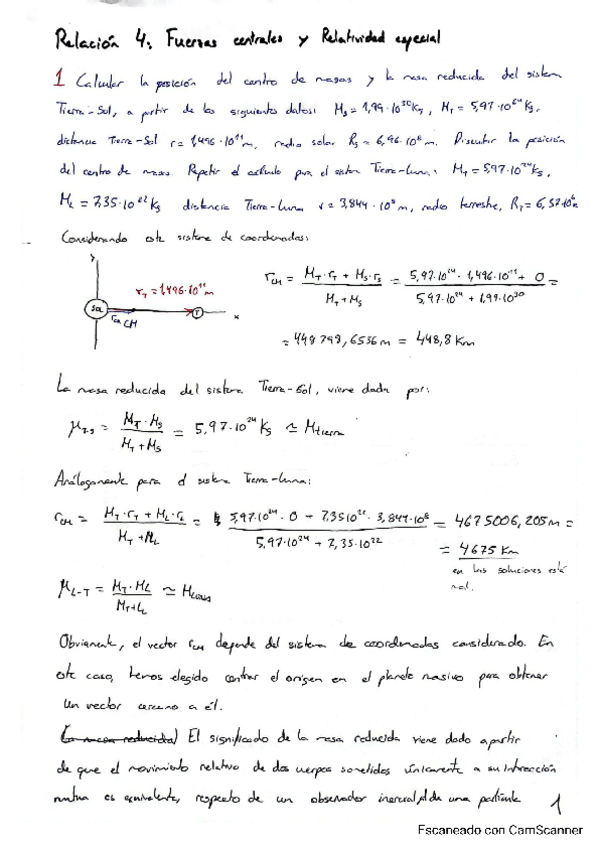 Relación 4: Fuerzas centrales y Relatividad especial
1 Calcular la posición del centro de masas y la masa reducida del sistema
Tierra-Sol, a partir de los siguientes datos: Ms = 1,99·10^30 Kg, MT = 5,97·10^24 Kg,
distancia Tierra-Sol r = 1,496·10^11 m, radio solar Rs = 6,96·10^8 m. Discutir la posición
del centro de masas. Repetir el cálculo para el sistema Tierra-Luna: MT = 5,97·10^24 Kg,
ML = 7,35·10^22 Kg distancia Tierra-Luna r = 3,844·10^8 m, radio terrestre, RT = 6,37·10^6 m
Considerando este sistema de coordenadas:
y
rT = 1,496·10^11 m
SOL
rCM CM
T
x
rCM = (MT·rT + Ms·rs)/(MT + Ms) = (5,97·10^24 · 1,496·10^11 + 0)/(5,97·10^24 + 1,99·10^30) =
= 448798,6536 m = 448,8 Km
La masa reducida del sistema Tierra-Sol, viene dada por:
μT-S = (MT·MS)/(MT + MS) = 5,97·10^24 Kg ≃ Mtierra
Análogamente para el sistema Tierra-Luna:
rCM = (MT·rT + ML·rL)/(MT + ML) = (5,97·10^24 · 0 + 7,35·10^22 · 3,844·10^8)/(5,97·10^24 + 7,35·10^22) = 4675006,205 m =
= 4675 Km
en las soluciones está
mal.
μL-T = (MT·ML)/(MT+LL) ≃ MLuna
Obviamente, el vector rCM depende del sistema de coordenadas considerado. En
este caso, hemos elegido centrar el origen en el planeta masivo para obtener
un vector cercano a él.
La masa reducida El significado de la masa reducida viene dado a partir
de que el movimiento relativo de dos cuerpos sometidos únicamente a su interacción
mutua es equivalente, respecto de un observador inercial, al de una partícula
1
Escaneado con CamScanner